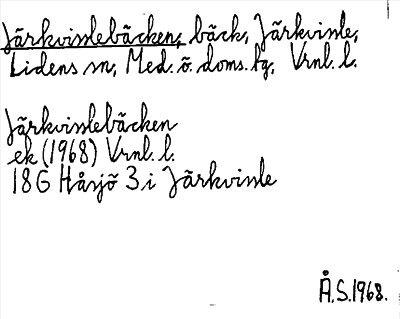 Järkvisslebäcken, bäck, Järkvissle,
Lidens sn, Med. ö. doms. tg, Vrnl. l.
Järkvisslebäcken
ek (1968) Vrnl. l.
18G Håsjö 3 i Järkvissle
Å.S. 1968.